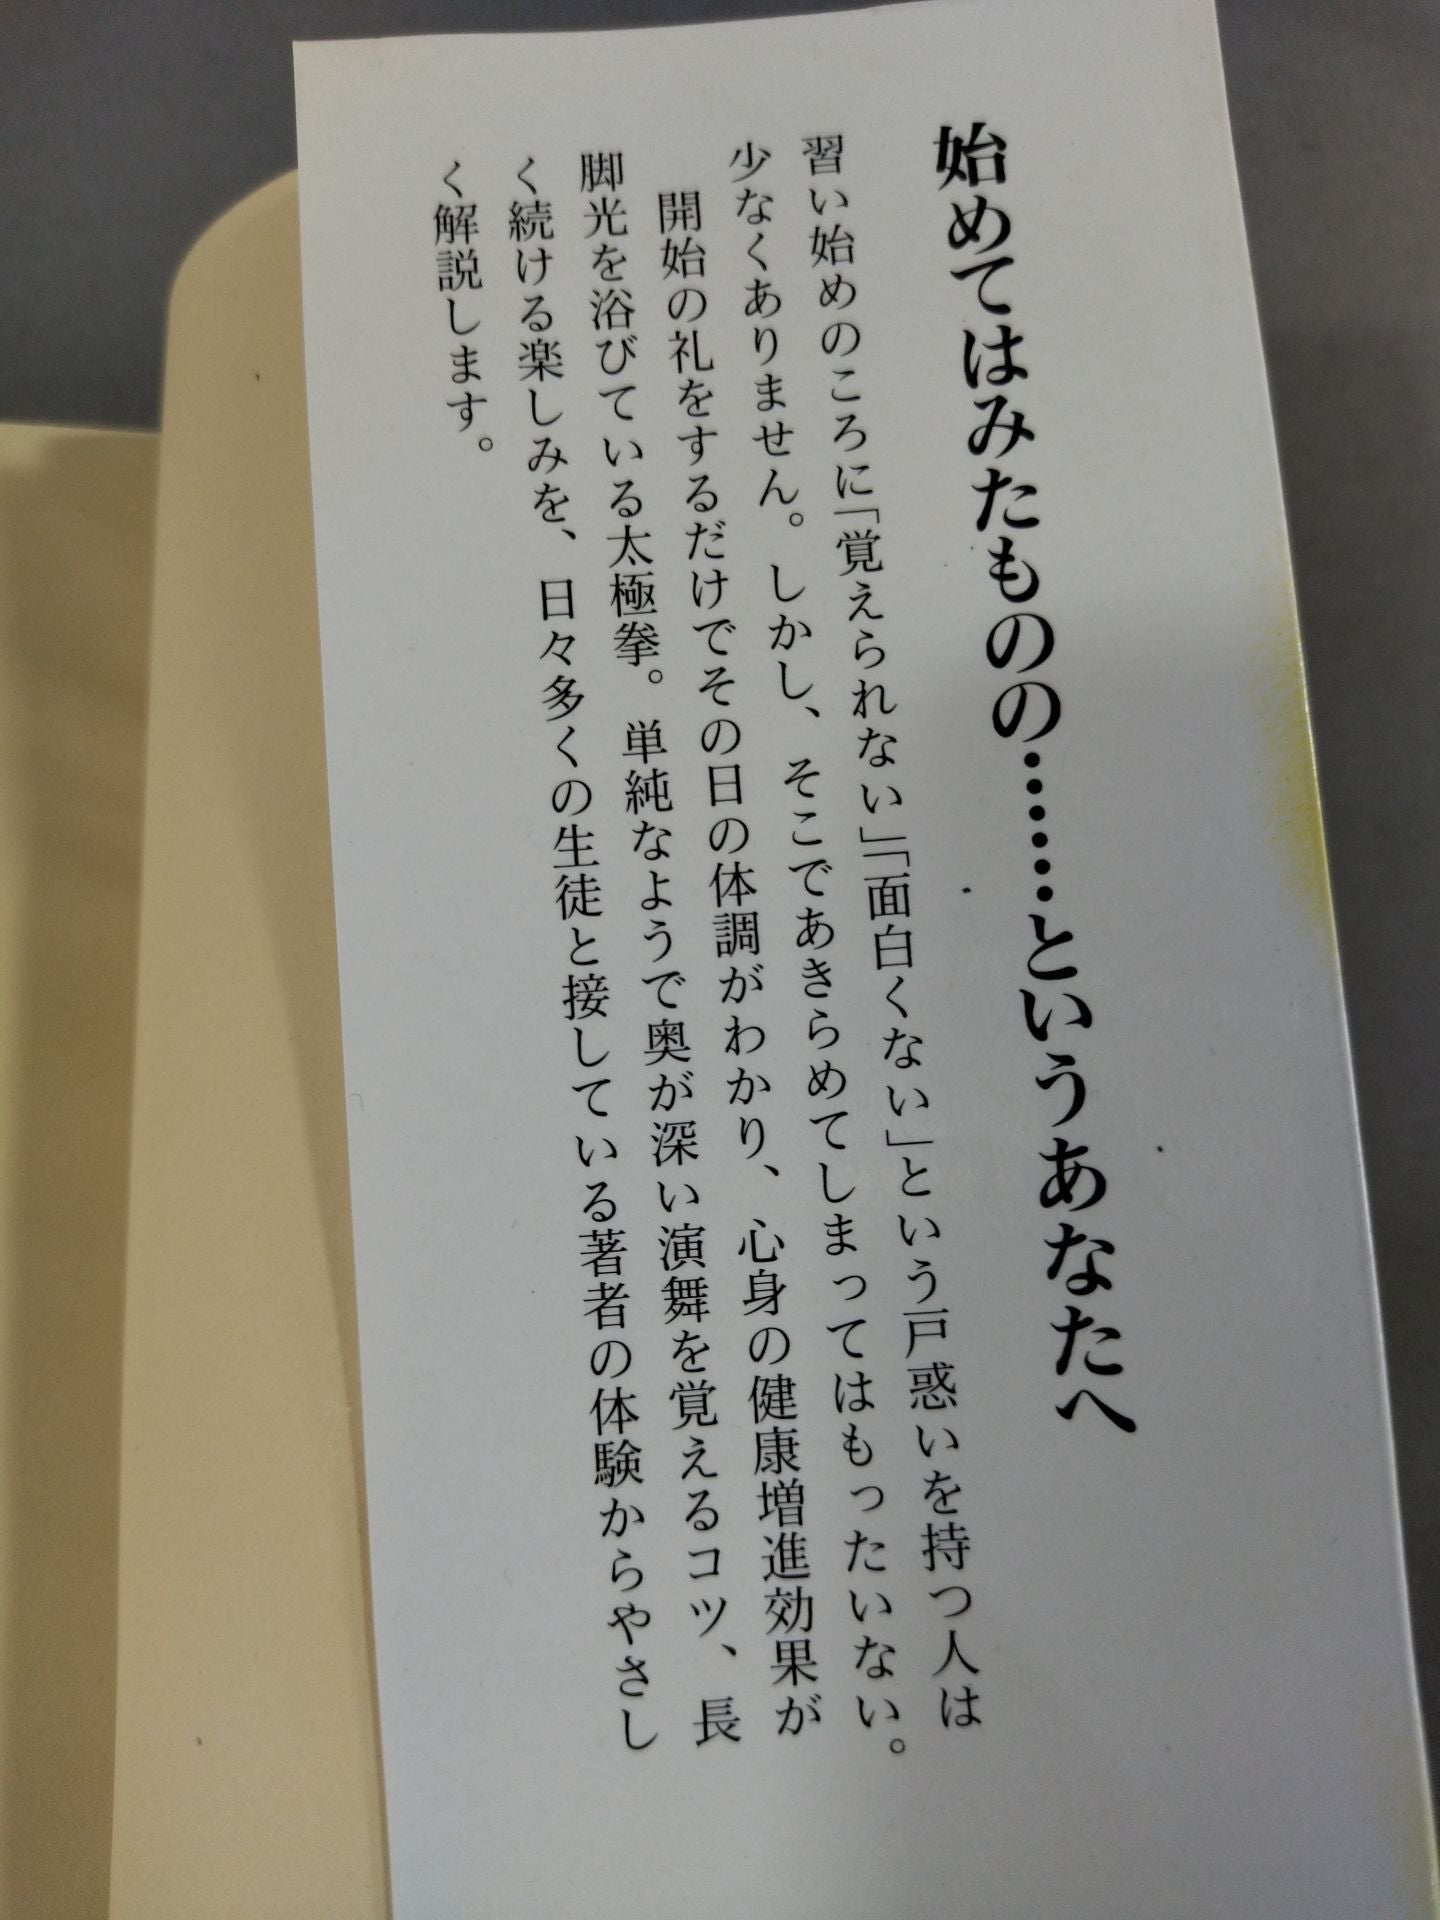 始めてはみたものの……というあなたへ
習い始めのころに「覚えられない」「面白くない」という戸惑いを持つ人は
少なくありません。しかし、そこであきらめてしまってはもったいない。
開始の礼をするだけでその日の体調がわかり、心身の健康増進効果が
脚光を浴びている太極拳。単純なようで奥が深い演舞を覚えるコツ、長
く続ける楽しみを、日々多くの生徒と接している著者の体験からやさし
く解説します。